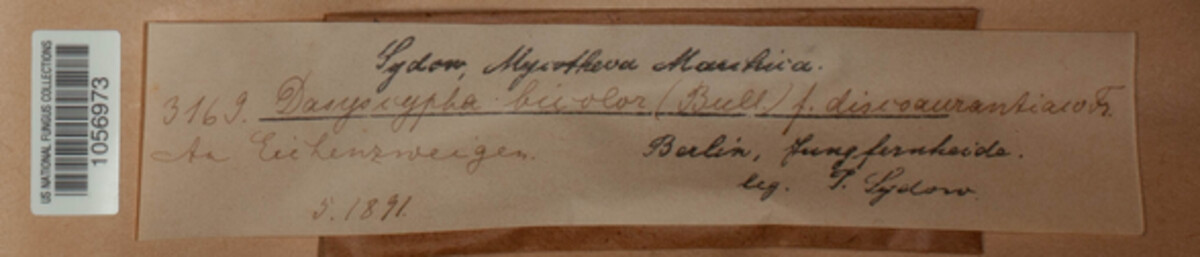 US NATIONAL FUNGUS COLLECTIONS
1056973
Sydow, Mycotheca Marchica.
3169. Dasyscypha bicolor (Bull.) f. discoaurantiaco Fr.
An Eichenzweigen.
Berlin, Jungfernheide.
leg. P. Sydow
5. 1891.